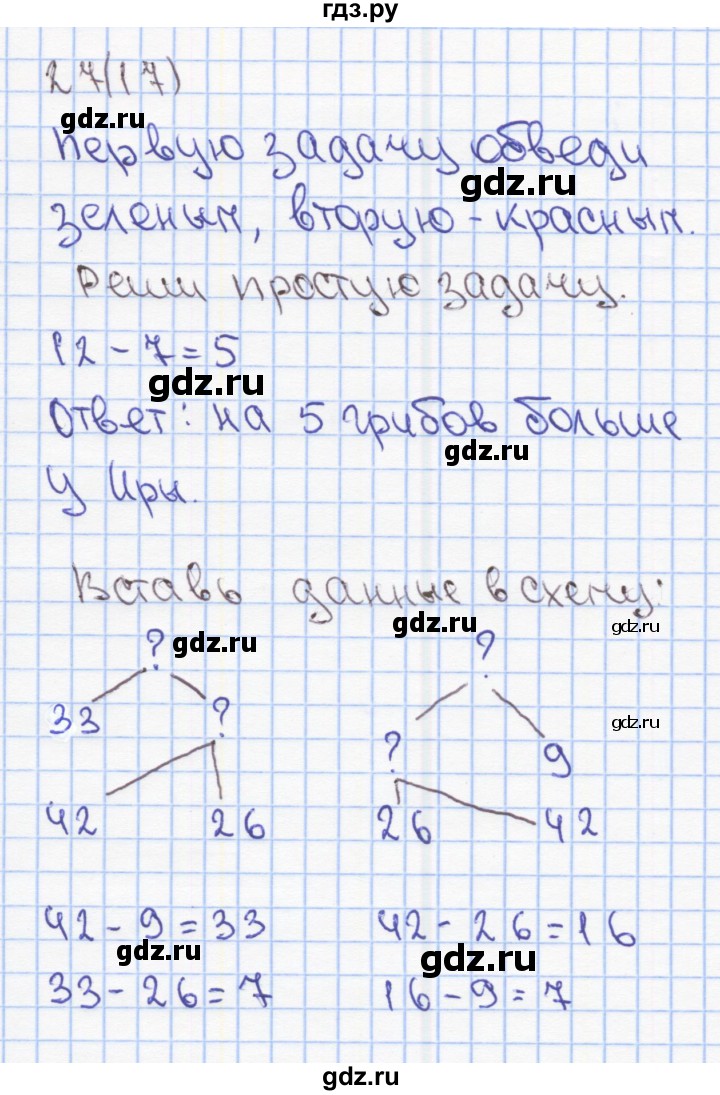 гдз.ру
27(17)
gdz.ru
Первую задачу обведи
gdz.ru
зеленым, вторую - красным.
Реши простую задачу.
12 - 7 = 5
gdz.ru
Ответ: на 5 грибов больше
gdz.ru
у Иры.
Вставь данные в схему:
gdz.ru gdz.ru
? gdz.ru ?
33 ? gdz.ru
? 9
42 26 26 42
42 - 9 = 33 42 - 26 = 16
gdz.ru gdz.ru
33 - 26 = 7 16 - 9 = 7
gdz.ru